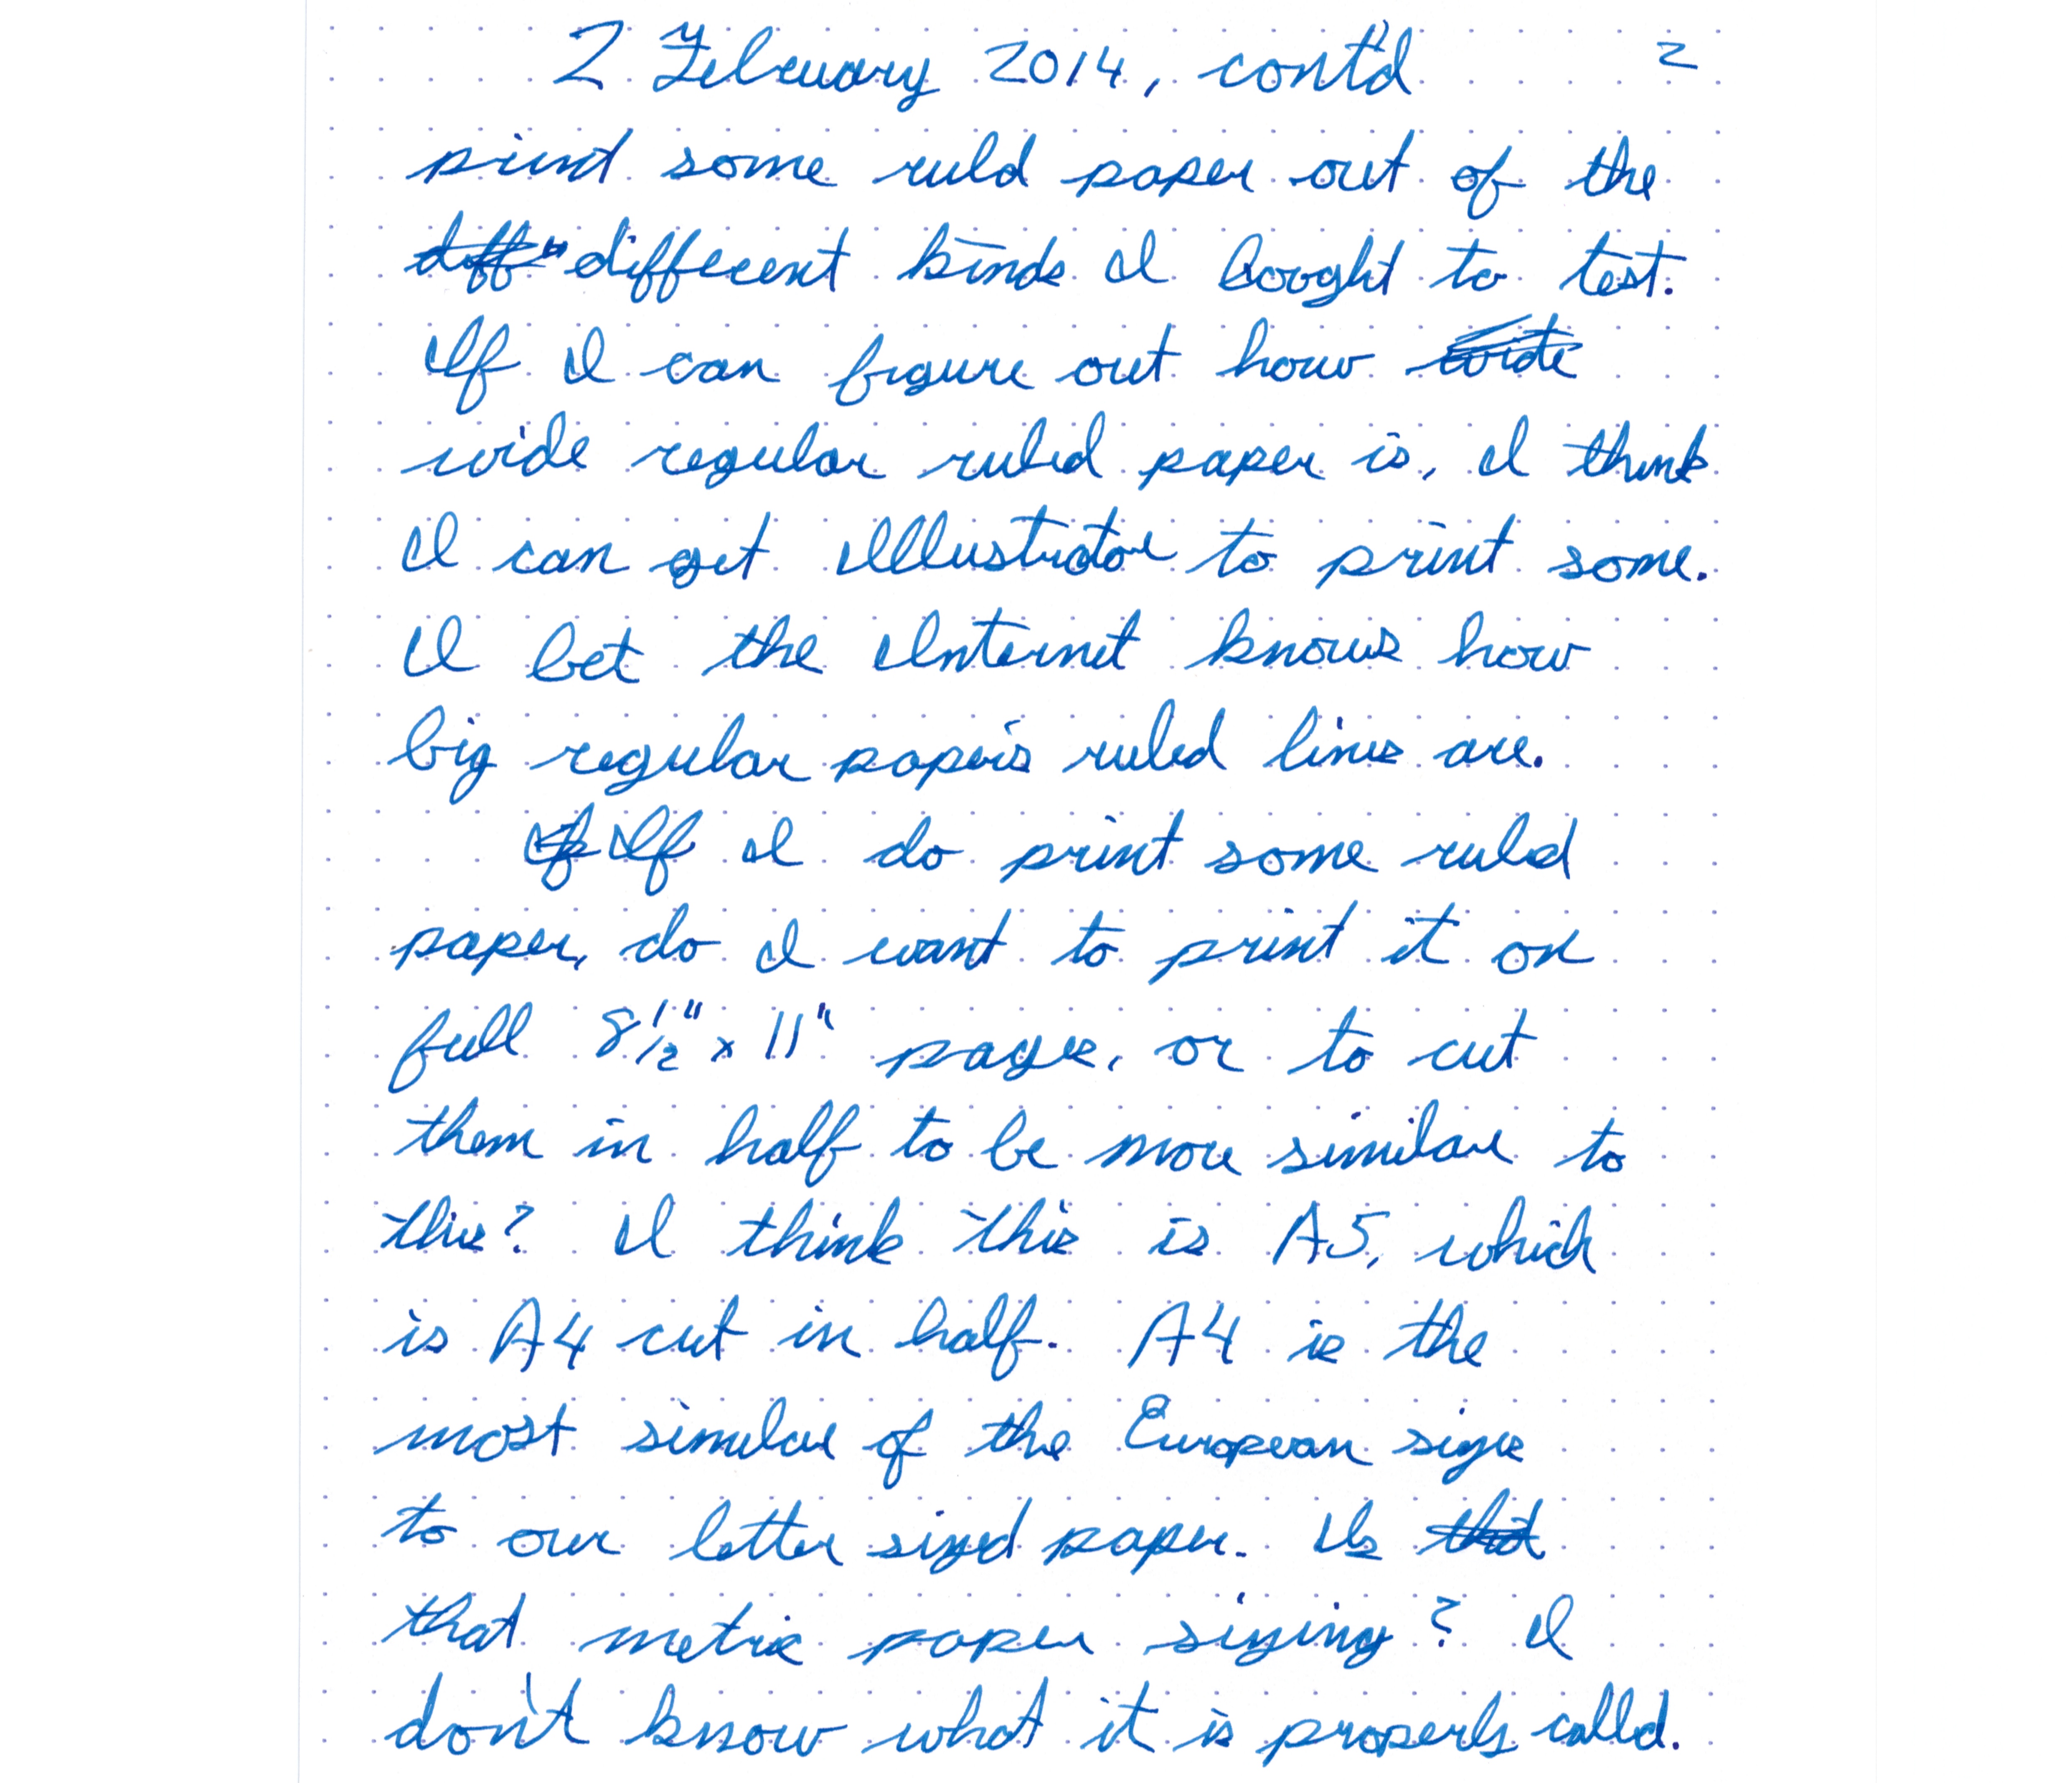 2 February 2014, cont'd 2
print some ruled paper out of the
diff different kinds I bought to test.
If I can figure out how wide
wide regular ruled paper is, I think
I can get Illustrator to print some.
I bet the Internet knows how
big regular paper's ruled lines are.
If If I do print some ruled
paper, do I want to print it on
full 8 1/2" x 11" pages, or to cut
them in half to be more similar to
this? I think this is A5, which
is A4 cut in half. A4 is the
most similar of the European sizes
to our letter sized paper. Is that
that metric paper sizing? I
don't know what it is properly called.